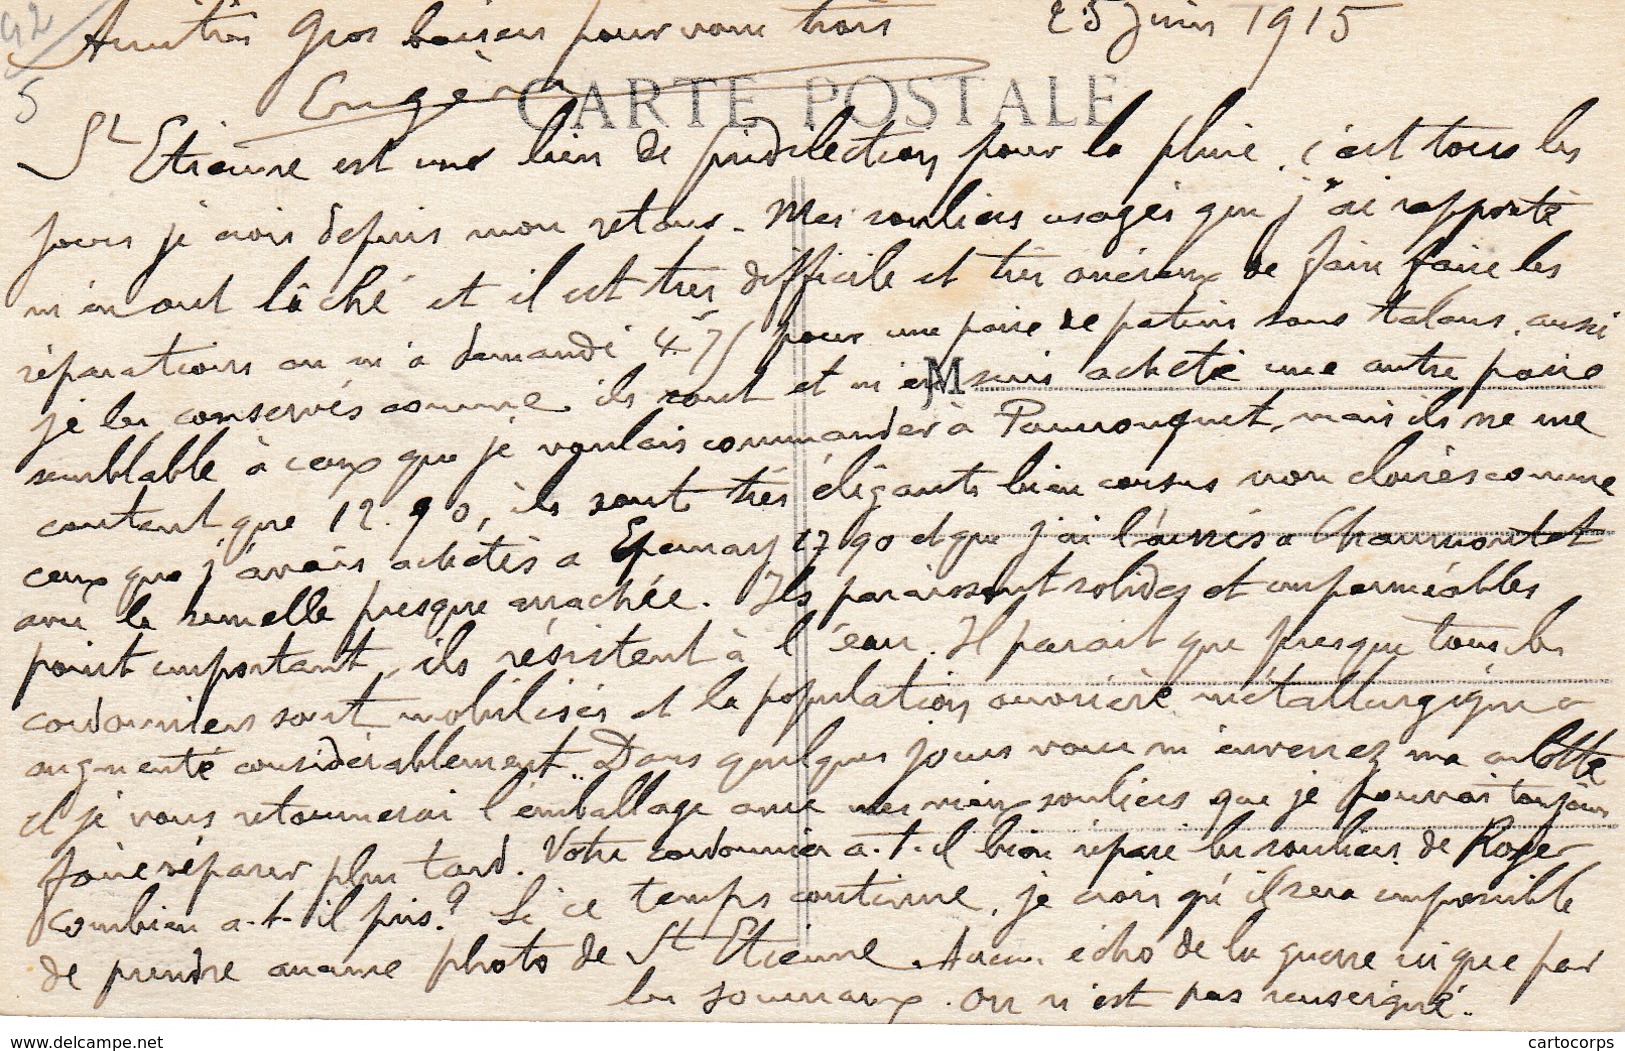 42
5
Amitiés Gros baisers pour vous trois 25 Juin 1915
Eugène
CARTE POSTALE
St Etienne est une lieu de prédilection pour la pluie, c'est tous les
jours je crois depuis mon retour. Mes souliers usagés que j'ai rapporté
m'en ont lâché et il est très difficile et très onéreux de faire faire les
réparations on m'a demandé 4.75 pour une paire de patins sans talons, aussi
je les conservés comme ils sont et m'en suis acheté une autre paire
M
semblable à ceux que je voulais commander à mais ils ne me
coutent que 12.90, ils sont très élégants bien cousus non cloués comme
ceux que j'avais achetés a Epernay 17.90 et que j'ai laissés a Chaumont et
avec la semelle presque arrachée. Ils paraissent solides et imperméables
point important, ils résistent à l'eau. Il parait que presque tous les
cordonniers sont mobilisés et la population ouvrière métallurgique a
augmenté considérablement. Dans quelques jours vous m'enverrez ma culotte
et je vous retournerai l'emballage avec mes vieux souliers que je pourrai toujours
faire réparer plus tard. Votre cordonnier a-t-il bien réparé les souliers de Roger
combien a-t-il pris? Si ce temps continue, je crois qu'il sera impossible
de prendre aucune photo de St Etienne. Aucun écho de la guerre ici que par
les journaux. On n'est pas renseigné.
delcampe.net
cartocorps